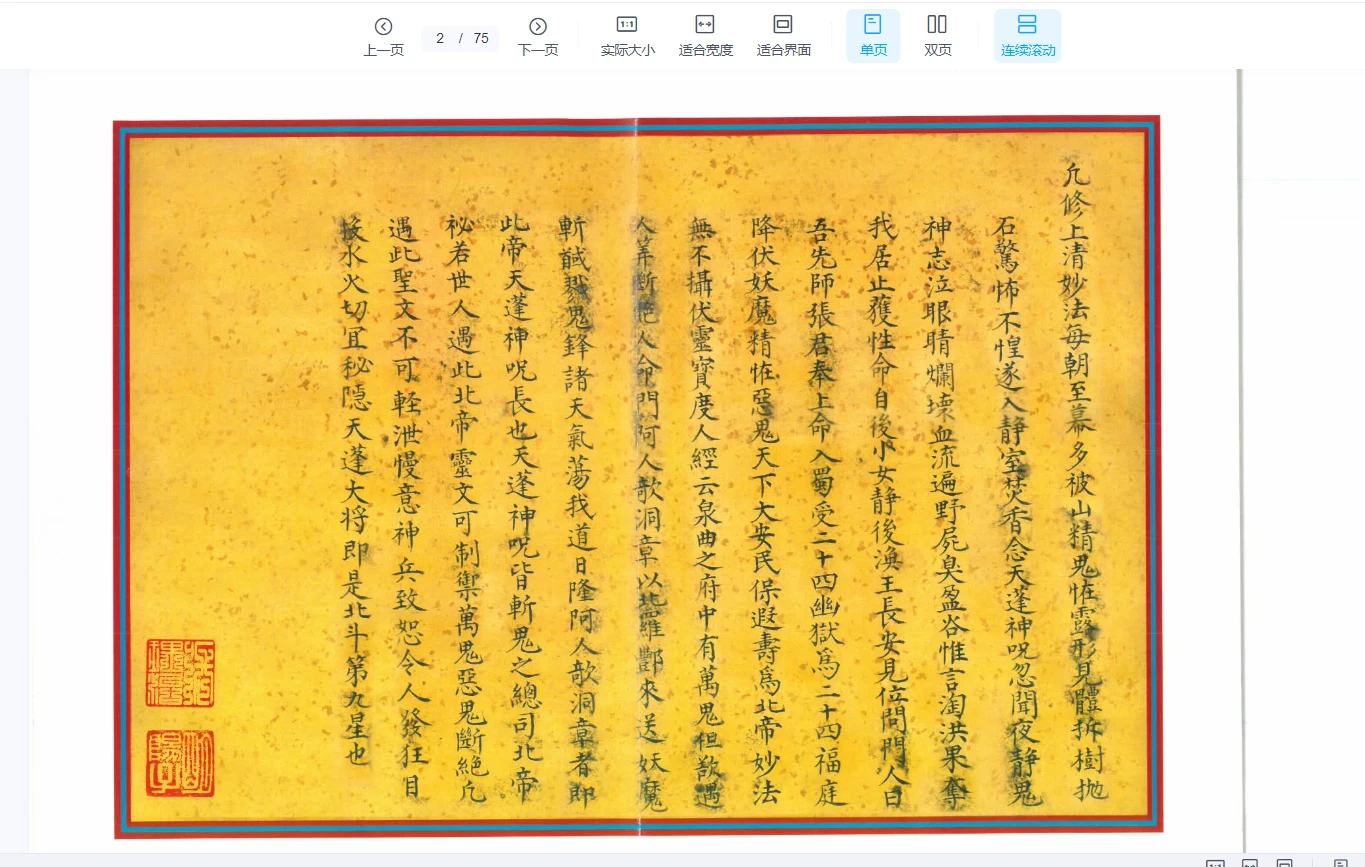 上一页
2 / 75
下一页
实际大小
适合宽度
适合界面
单页
双页
连续滚动
凢修上清妙法每朝至幕多被山精鬼恠露形見體拆樹抛
石驚怖不惶遂入静室焚香念天蓬神呪忽聞夜静鬼
神志泣眼睛爛壊血流遍野屍臭盈谷惟言淘洪果奪
我居止獲性命自後小女静後渙王長安見位問門人曰
吾先師張君奉上命入蜀受二十四幽獄爲二十四福庭
降伏妖魔精恠惡鬼天下大安民保遐壽爲北帝妙法
無不攝伏靈寶度人經云泉曲之府中有萬鬼但欲遏
人筭斷絶人命門阿人歌洞章以北羅酆來送妖魔
斬馘戮鬼鋒諸天氣荡我道日隆阿人歌洞章者即
此帝天蓬神呪長也天蓬神呪皆斬鬼之總司北帝
秘若世人遇此北帝靈文可制禦萬鬼惡鬼斷絶凢
遇此聖文不可軽泄慢意神兵致恕令人發狂目
水火切宜秘隠天蓬大将即是北斗第九星也